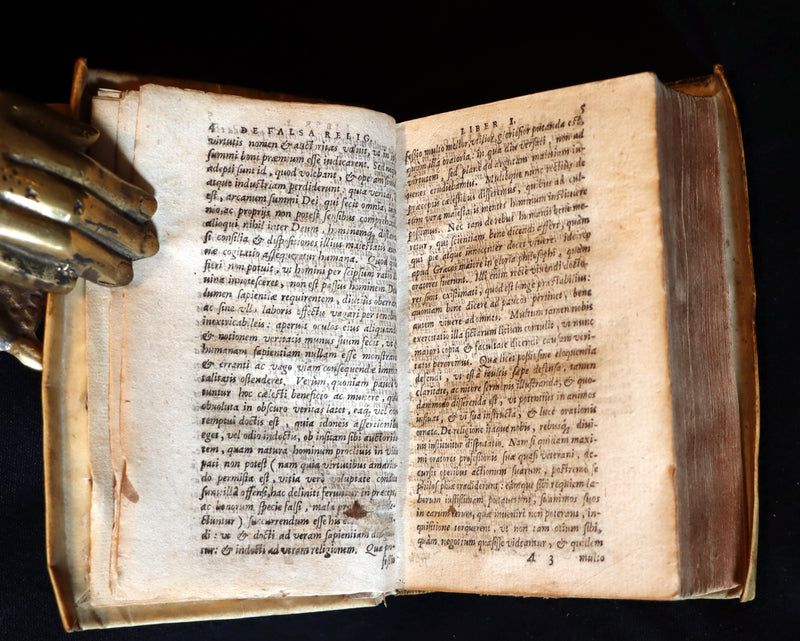 4 DE FALSA RELIG.
virtutis nomen & auctoritas valuit, ut in
summi boni præmium esse indicarent. Sed
adepti sunt id, quod volebant, & operam
atque industriam perdiderunt: quia veritas
est, arcanum summi Dei, qui fecit omnia,
nio, ac proprijs non potest sensibus comprehe
alioqui nihil inter Deum, hominemq; distaret
si consilia & dispositiones illius maiestatis
næ cogitatio assequeretur humana. Quod
fieri non potuit, ut homini per seipsum ratio
uina innotesceret, non est passus hominem
lumen sapientiæ requirentem, diutius oberra
ac sine ullo laboris effectu vagari per
inextricabileis: aperuit oculos eius aliquan
& notionem veritatis munus suum fecit, ut
humanam sapientiam nullam esse monstraret
& erranti ac vago viam consequendæ
talitatis ostenderet. Verum, quoniam pauci
tuntur hoc cælesti beneficio ac munere, quod
obuoluta in obscuro veritas latet, eaq; vel con
temptui doctis est, quia idoneis assertoribus
eget, vel odio indoctis, ob insitam sibi austerita
tem, quam natura hominum procliuis in vitia
pati non potest (nam quia virtutibus amaritu
do permista est, vitia vero voluptate condita
sunt: illa offensi, hac deliniti feruntur in præceps,
ac bonorum specie falsi, mala pro
ctuntur) succurrendum esse his
di: ut & docti ad veram sapientiam
tur: & indocti ad veram religionem. Quæ pro
fessio
LIBER I. 5
fessio multo melior, utilior, gloriosior putanda est,
quam illa oratoria: in qua diu versati, non ad
virtutem, sed plane ad argutam malitiam iu-
uenes erudiebamus. Multoque nunc rectius de
præceptis cælestibus disseremus, quibus ad cul-
tum veræ maiestatis mentes hominum instituere
possimus. Nec tam de rebus humanis bene me-
retur, qui scientiam bene dicendi affert, quàm
qui pie atque innocenter docet vivere: idcirco
apud Græcos maiore in gloria philosophi, quàm
oratores fuerunt. Illi enim recte vivendi docto-
res sunt existimati, quod est longe præstabilius:
quoniam bene dicere ad paucos pertinet, bene
autem vivere ad omnes. Multum tamen nobis
exercitatio illa fictarum litium contulit, ut nunc
maiori copia & facultate dicendi causam veri-
tatis peroremus. Quæ licet possit sine eloquentia
defendi, ut est à multis sæpe defensa, tamen
claritate, ac nitore sermonis illustranda, & quo-
dammodo disserenda est, ut potentius in animos
influat, & vi sua instructa, & luce orationis
ornata. De religione itaque nobis, rebusq; diui-
nis instituitur disputatio. Nam si quidam maxi-
mi oratores professionis suæ quasi veterani, de-
cursis operibus actionum suarum, postremo se
philosophiæ tradiderunt: eamque sibi requiem la-
borum iustissimam putauerunt, si animos suos
in earum rerum, quæ inueniri non poterant, in-
quisitione torquerent, ut non tam otium sibi,
quàm negotium quæsisse videantur, & quidem
A 3 multo